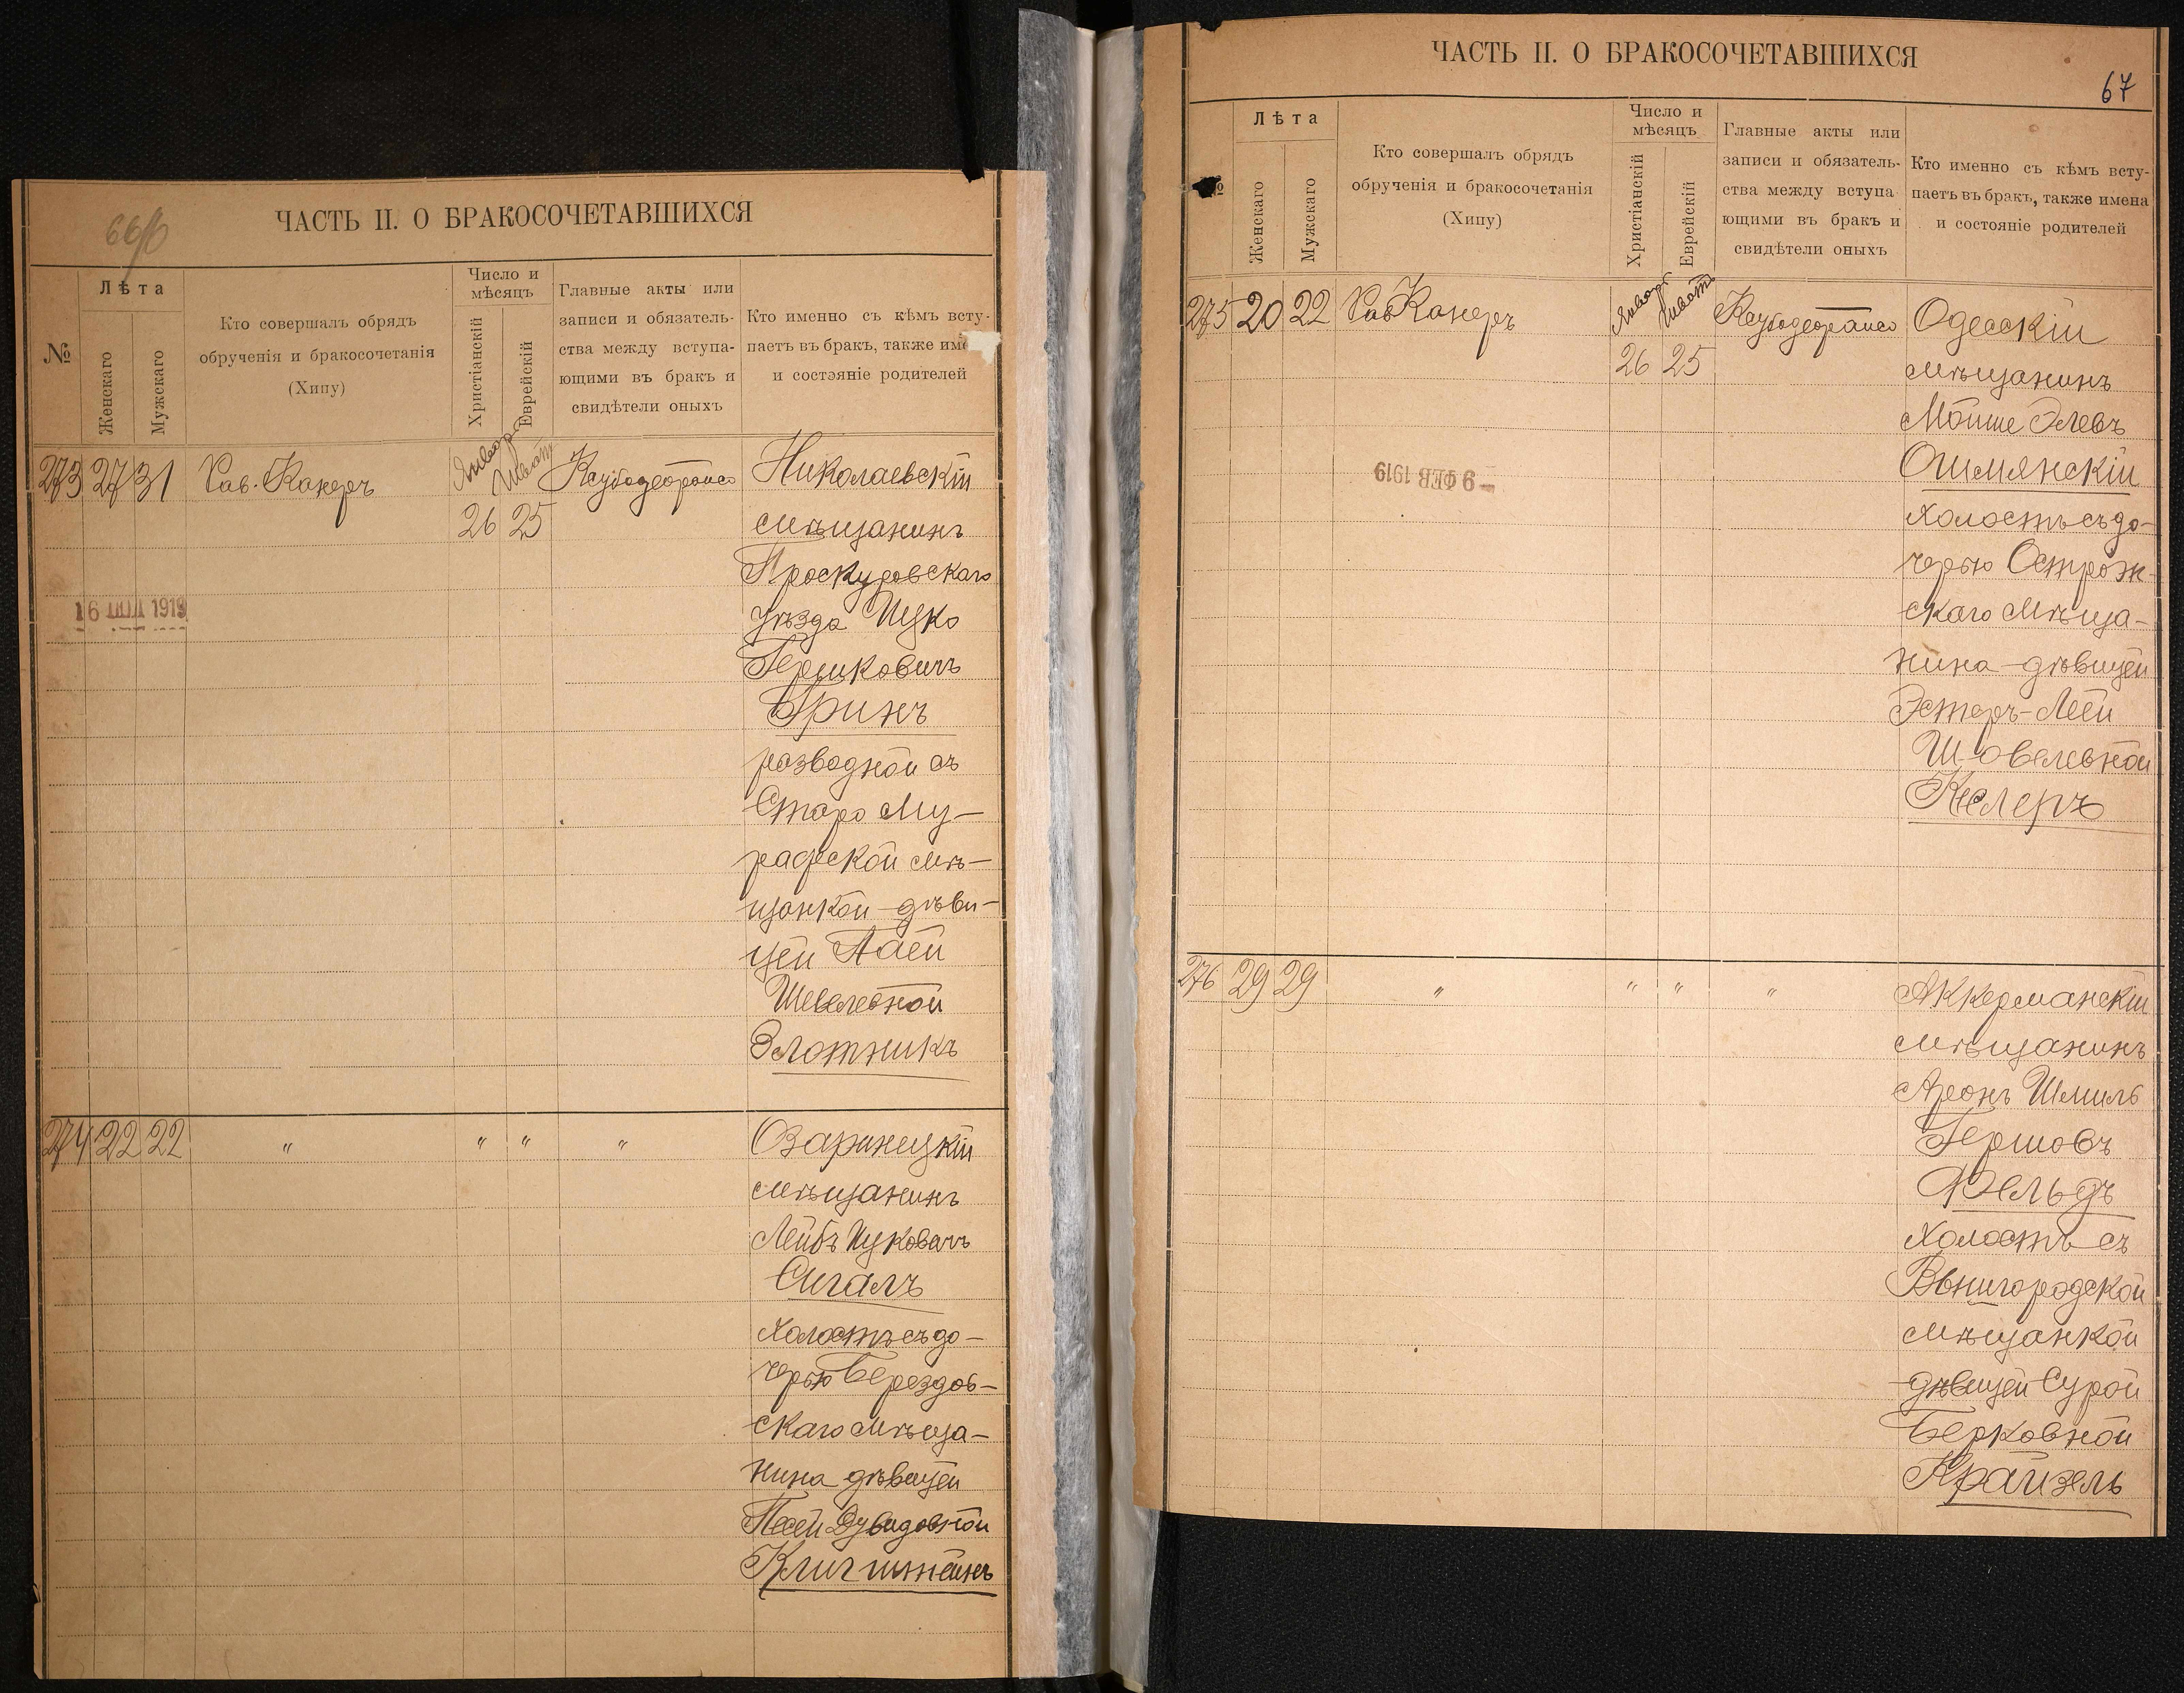 66/б
ЧАСТЬ II. О БРАКОСОЧЕТАВШИХСЯ
№
Лѣта
Женскаго
Мужскаго
Кто совершалъ обрядъ
обрученія и бракосочетанія
(Хипу)
Число и
мѣсяцъ
Христіанскій
Еврейскій
Главные акты или
записи и обязатель-
ства между вступа-
ющими въ бракъ и
свидѣтели оныхъ
Кто именно съ кѣмъ всту-
паетъ въ бракъ, также име
и состояніе родителей
273 27 31 Рав. Канеръ Января Шват Николаевскій
26 25 мѣщанинъ
Проскуровскаго
16 1919 уѣзда Ицко
Гершковичъ
Гринъ
разводной съ
Старо Му-
рафской мѣ-
щанкой дѣви-
цей Паей
Шевелевной
Злотникъ
274 22 22 " " " " Озаринецкій
мѣщанинъ
Лейбъ Ицковичъ
Сигалъ
холостъ съ до-
черью Берездов-
скаго мѣща-
нина дѣвицей
Песей Дувидовной
Клигштейнъ
ЧАСТЬ II. О БРАКОСОЧЕТАВШИХСЯ
67
№
Лѣта
Женскаго
Мужскаго
Кто совершалъ обрядъ
обрученія и бракосочетанія
(Хипу)
Число и
мѣсяцъ
Христіанскій
Еврейскій
Главные акты или
записи и обязатель-
ства между вступа
ющими въ бракъ и
свидѣтели оныхъ
Кто именно съ кѣмъ всту-
паетъ въ бракъ, также имена
и состояніе родителей
275 20 22 Рав Канеръ Января Шват Одесскій
26 25 мѣщанинъ
Мойше Элевъ
- 9 ФЕВ 1919 Ошмянскій
холостъ съ до-
черью Острож-
скаго мѣща-
нина дѣвицей
Эстеръ-Леей
Шовелевной
Келеръ
276 29 29 " " " " Аккерманскій
мѣщанинъ
Аронъ Шмиль
Гершовъ
Фельдъ
холостъ съ
Звенигородской
мѣщанкой
дѣвицей Сурой
Берковной
Крайзель